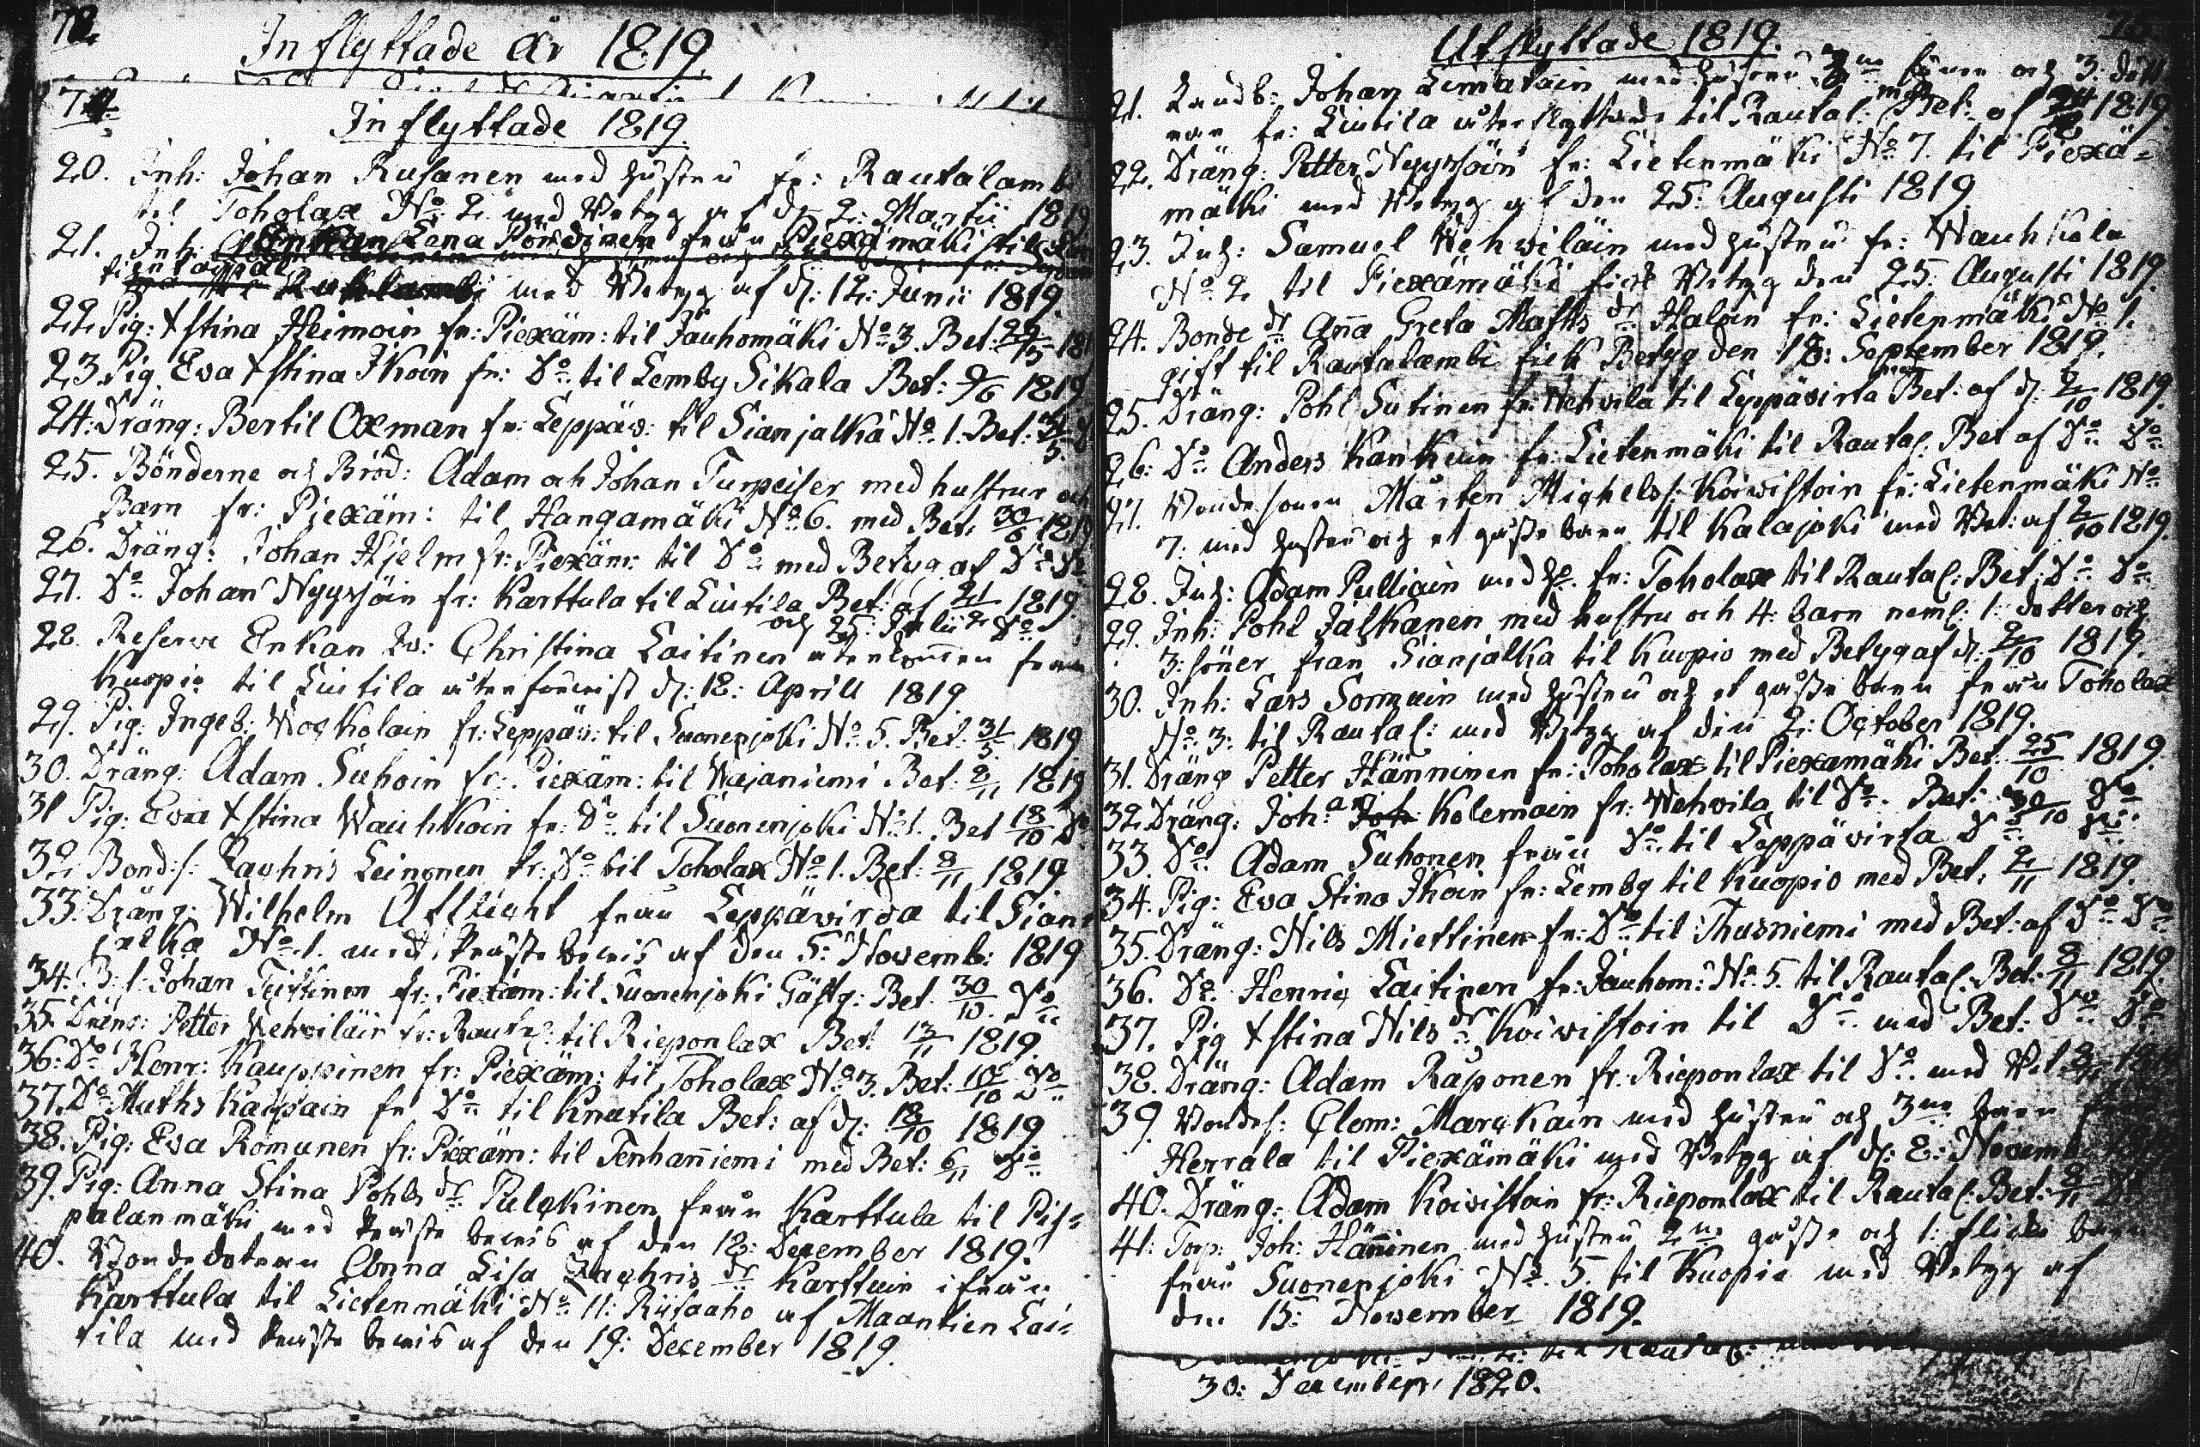 72.
Inflyttade År 1819
74.
Inflyttade 1819.
20. Inh: Johan Rusanen med hustru fr: Rautalambi
til Toholax No 2. med Betyg af d: 2: Martii 1819
21. Inh: Enkan Lena Pöndinen från Piexämäki til
med Betyg af d: 12: Junii 1819.
22. Pig: Xstina Heimoin fr: Piexäm: til Jauhomäki No 3. Bet: 181
23. Pig. Eva Xstina Ikoin fr: Do til Lemby Sikala Bet: 9/6 1819
24: Dräng: Bertil Oxman fr: Leppäv: til Sianjalka No 1. Bet:
25. Bönderne och Bröd: Adam och Johan Turpeiser med hustrur och
Barn fr: Piexäm: til Hangamäki No 6. med Bet: 30/6 1819
26. Dräng: Johan Hjelm fr: Piexäm: til Do med Betyg af Do Do
27. Do Johan Nyyssöin fr: Karttula til Lintila Bet: af 21/2 1819.
och 25. Julii Do
28. Reserv Enkan Christina Laitinen återkommen från
Kuopio til Lintila d: 12: Aprill 1819
29. Pig: Ingeb: fr: Leppäv: til Suonenjoki No 5. Bet: 31/5 1819
30. Dräng: Adam Suhoin fr: Piexäm: til Wajaniemi Bet: 8/11 1819
31 Pig: Eva Xstina Wauhkoin fr: Do til Suonenjoki No 1. Bet 18/10 Do
32. Bond: s: Zachris Leinonen fr: Do til Toholax No 1. Bet: 8/11 1819
33. Dräng: Wilhelm Aflicht från Leppävirda til Sian
jalka No 1. med Prästebevis af den 5: Novemb: 1819
34. B: s: Johan Teittinen fr: Piexäm: til Suonenjoki Gästg: Bet 30/10. Do
35. Dräng: Petter Wehviläin fr: Rautal: til Rieponlax Bet: 13/11 1819.
36: Do Henr: Kauppinen fr: Piexäm: til Toholax No 3. Bet: Do
37. Do Maths fr Do til Knutila Bet: af d: 18/10 1819
38. Pig: Eva Romunen fr: Piexäm: til Tenhaniemi med Bet: 6/11 Do
39. Pig: Anna Stina Pohls dr Pulckinen från Karttula til Pis=
palanmäki med Prästebevis af den 12: December 1819.
40. Bondedotren Anna Lisa Zachris dr Karttuin ifrån
Karttula til Lietenmäki No 11: Riisaaho af Maantien Lai=
tila med Prästebevis af den 19: December 1819.
Utflyttade 1819.
21. Landb: Johan Limatain med hustru 3ne söner och 3: dött
rar fr: Lintila återflyttade til Rautal: med Bet: af 1819.
22. Dräng: Petter Nyyssöin fr: Lietenmäki No 7. til Piexä=
mäki med Betyg af den 25: Augusti 1819
23. Inh: Samuel Wehviläin med hustru fr: Wauhkola
No 2 til Piexämäki fick Betyg den 25: Augusti 1819.
24. Bonde dr Anna Greta Maths dr Haloin fr: Lietenmäki No 1.
gift til Rautalambi fick Betyg den 18: September 1819.
25. Dräng: Pohl Sutinen fr: Wehvilä til Leppävirta med Bet: af d: 2/10 1819.
26. Do Anders Kankuin fr: Lietenmäki til Rautal: Bet af Do Do
27. Bondesonen Mårten Michelss: Koivistoin fr: Lietenmäki No
7: med hustru och et gosse barn til Kalajoki med Bet: af 2/10 1819.
28. Inh: Adam Pulliain med ho. fr: Toholax til Rautal: Bet: Do Do
29. Inh: Pohl Jälkänen med hustru och 4: barn neml: 1: dotter och
3: söner från Sianjalka til Kuopio med Betyg af d: 2/10 1819.
30. Inh: Lars Sormuin med hustru och et gosse barn från Toholax
No 3: til Rautal: med Betyg af den 2: October 1819.
31. Dräng Petter Hänninen fr: Toholax til Piexämäki Bet: 25/10 1819.
32. Dräng: Joh: Kolemain fr: Wehvila til Do. Bet: 30/10 Do
33. Do Adam Suhonen från Do til Leppävirta Do Do
34. Pig: Eva Stina Ikoin fr: Lemby til Kuopio med Bet: 2/11 1819.
35. Dräng: Nils Miettinen fr: Do til Thusniemi med Bet: af Do Do
36. Do Henric Laitinen fr: Jauhom: No 5. til Rautal: Bet: 8/11 1819.
37. Pig Xstina Nils dr Koivistoin til Do med Bet: Do Do
38. Dräng: Adam Raponen fr. Rieponlax til Do med Bet
39. Bondes: Clem: Marckain med hustru och 3ne barn från
Herrala til Piexämäki med Betyg af d: 8: Novemb
40. Dräng: Adam Koivistoin fr: Rieponlax til Rautal: Bet: 8/11 Do
41: Torp: Joh: Hänninen med hustru 2ne gosse och 1: flicke barn
från Suonenjoki No 5. til Kuopio med Betyg af
den 15: November 1819.
30: December 1820.